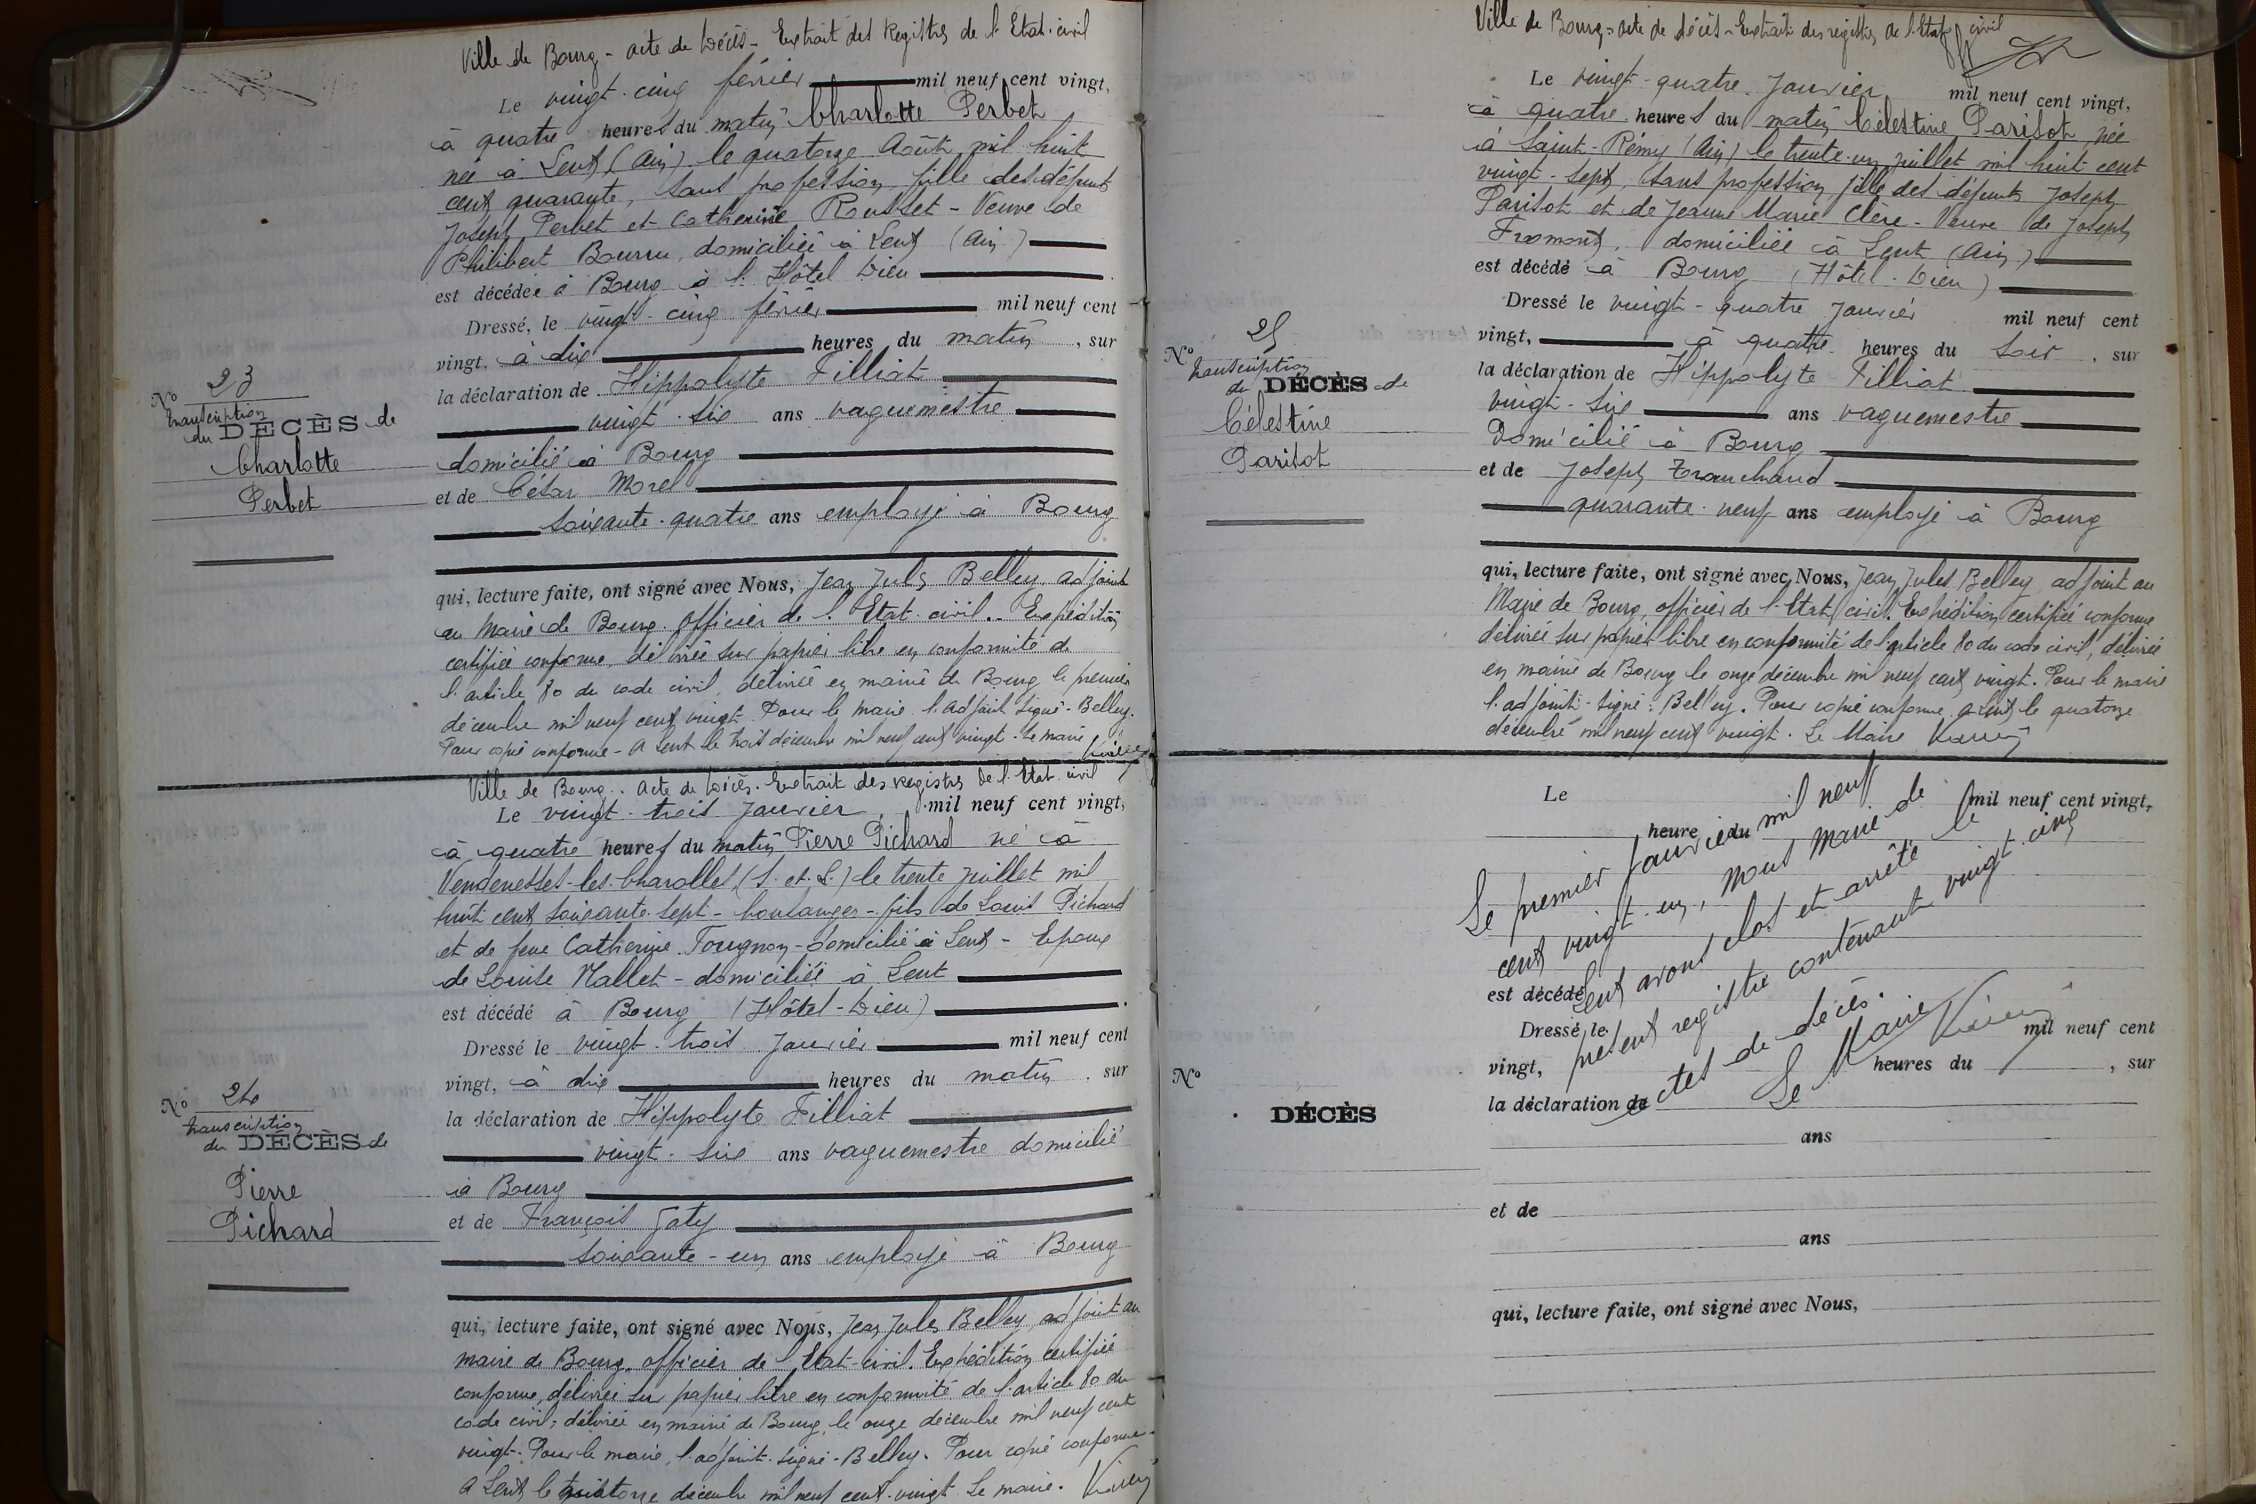 Ville de Bourg - acte de Décès - Extrait des Registres de l'Etat civil
Le vingt-cinq février mil neuf cent vingt,
à quatre heures du matin Charlotte Perbet
née à Lent (Ain) le quatorze Août mil huit
cent quarante, sans profession, fille des défunts
Joseph Perbet et Catherine Rousset - Veuve de
Philibert Bourru, domiciliée à Lent (Ain)
est décédée à Bourg à l'Hôtel Dieu
Dressé, le vingt-cinq février mil neuf cent
vingt, à dix heures du matin, sur
la déclaration de Hippolyte Filliat
vingt-six ans vaguemestre
domicilié à Bourg
et de César Morel
soixante-quatre ans employé à Bourg
qui, lecture faite, ont signé avec Nous, Jean Jules Belley, adjoint
au Maire de Bourg officier de l'Etat civil. - Expédition
certifiée conforme, délivrée sur papier libre en conformité de
l'article 80 du code civil, délivrée en mairie de Bourg le premier
décembre mil neuf cent vingt. Pour le maire l'adjoint signé - Belley.
Pour copie conforme - A Lent le trois décembre mil neuf cent vingt. Le maire
No 23
transcription
du DÉCÈS de
Charlotte
Perbet
Ville de Bourg. - Acte de Décès. Extrait des registres de l'Etat civil
Le vingt-trois Janvier, mil neuf cent vingt,
à quatre heures du matin Pierre Pichard né à
Vendenesses-les-Charolles (S. et L.) le trente juillet mil
huit cent soixante-sept - boulanger - fils de Louis Pichard
et de feue Catherine Tougnon - domicilié à Lent - Epoux
de Louise Mallet - domiciliée à Lent
est décédé à Bourg (Hôtel-Dieu)
Dressé le vingt-trois Janvier mil neuf cent
vingt, à dix heures du matin, sur
la déclaration de Hippolyte Filliat
vingt-six ans vaguemestre domicilié
à Bourg
et de François Gaty
soixante-un ans employé à Bourg
qui, lecture faite, ont signé avec Nous, Jean Jules Belley, adjoint au
maire de Bourg, officier de l'Etat-civil. Expédition certifiée
conforme, délivrée sur papier libre en conformité de l'article 80 du
code civil, délivrée en mairie de Bourg, le onze décembre mil neuf cent
vingt. Pour le maire, l'adjoint - signé - Belley. Pour copie conforme -
A Lent le quatorze décembre mil neuf cent vingt. Le maire.
No 24
transcription
du DÉCÈS de
Pierre
Pichard
Ville de Bourg - acte de décès - Extrait des registres de l'Etat civil
Le vingt-quatre Janvier mil neuf cent vingt,
à quatre heures du matin Célestine Parisot, née
à Saint-Rémy (Ain) le trente-un juillet mil huit cent
vingt-sept, sans profession, fille des défunts Joseph
Parisot et de Jeanne Marie Clère - Veuve de Joseph
Fromont, domiciliée à Lent (Ain)
est décédé à Bourg (Hôtel-Dieu)
Dressé le vingt-quatre Janvier mil neuf cent
vingt, à quatre heures du soir, sur
la déclaration de Hippolyte Filliat
vingt-six ans vaguemestre
Domicilié à Bourg
et de Joseph Tranchand
quarante-neuf ans employé à Bourg
qui, lecture faite, ont signé avec Nous, Jean Jules Belley adjoint au
Maire de Bourg, officier de l'Etat civil. Expédition certifiée conforme
délivrée sur papier libre en conformité de l'article 80 du code civil, délivrée
en mairie de Bourg le onze décembre mil neuf cent vingt. Pour le maire
l'adjoint - signé : Belley. Pour copie conforme, à Lent le quatorze
décembre mil neuf cent vingt. Le Maire
No 25
transcription
de DÉCÈS de
Célestine
Parisot
Le mil neuf cent vingt,
heure du
est décédé
Dressé le mil neuf cent
vingt, heures du , sur
la déclaration de
ans
et de
ans
qui, lecture faite, ont signé avec Nous,
No
DÉCÈS
Le premier Janvier mil neuf
cent vingt-un, nous Maire de
Lent avons clos et arrêté le
présent registre contenant vingt-cinq
actes de décès.
Le Maire